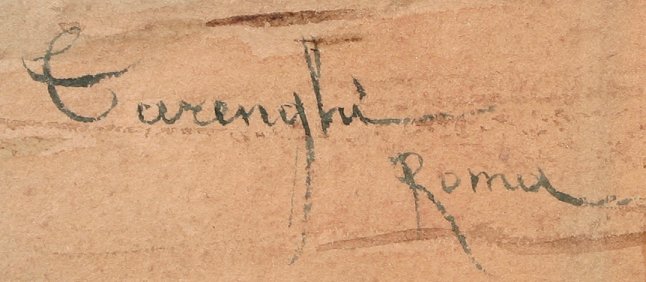 Tarenghi
Roma